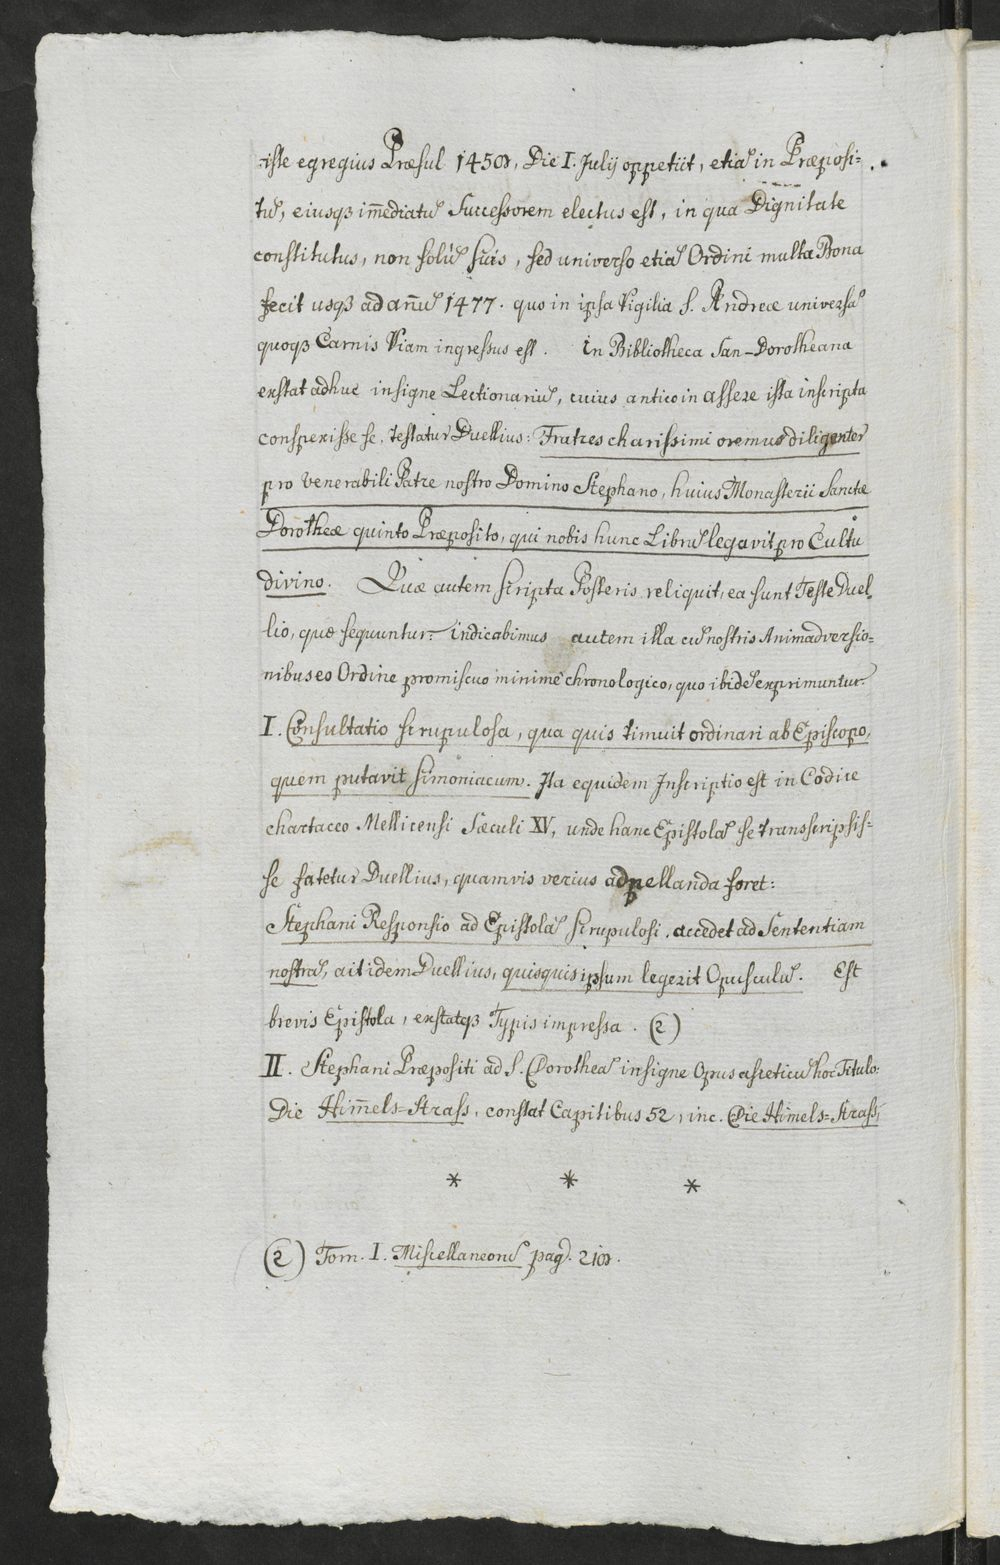 iste egregius Præsul 1458, Die I. Julij oppetiit, etiã in Præposi=
tũ, eiusq3 im̃ediatũ Successorem electus est, in qua Dignitate
constitutus, non solũ suis, sed universo etiã Ordini multa Bona
fecit usq3 ad añũ 1477. quo in ipsa Vigilia S. Andreæ universã
quoq3 Carnis Viam ingressus est. In Bibliotheca San-Dorotheana
exstat adhuc insigne Lectionariũ, cuius antico in assere ista inscripta
conspexisse se, testatur Duellius: Fratres charissimi oremus diligenter
pro venerabili Patre nostro Domino Stephano, huius Monasterii Sanctæ
Dorotheæ quinto Præposito, qui nobis hunc Librũ legavit pro Cultu
divino. Quæ autem scripta Posteris reliquit, ea sunt Teste Duel=
lio, quæ sequuntur. indicabimus autem illa cũ nostris Animadversio=
nibus eo Ordine promiscuo minimè chronologico, quo ibidẽ exprimuntur.
I. Consultatio scrupulosa, qua quis timuit ordinari ab Episcopo,
quem putavit simoniacum. Ita equidem Inscriptio est in Codice
chartaceo Mellicensi Sæculi XV, unde hanc Epistolã se transcripsis=
se fatetur Duellius, quamvis verius adpellanda foret:
Stephani Responsio ad Epistolã scrupulosi. accedet ad Sententiam
nostrã, ait idem Duellius, quisquis ipsum legerit Opusculũ. Est
brevis Epistola, exstatq3 Typis impressa. (2)
II. Stephani Præpositi ad S. Dorotheã insigne Opus asceticũ hoc Titulo:
Die Him̃els=Strass, constat Capitibus 52, inc. Die Himels=Strass,
* * *
(2) Tom. I. Miscellaneorũ pag.